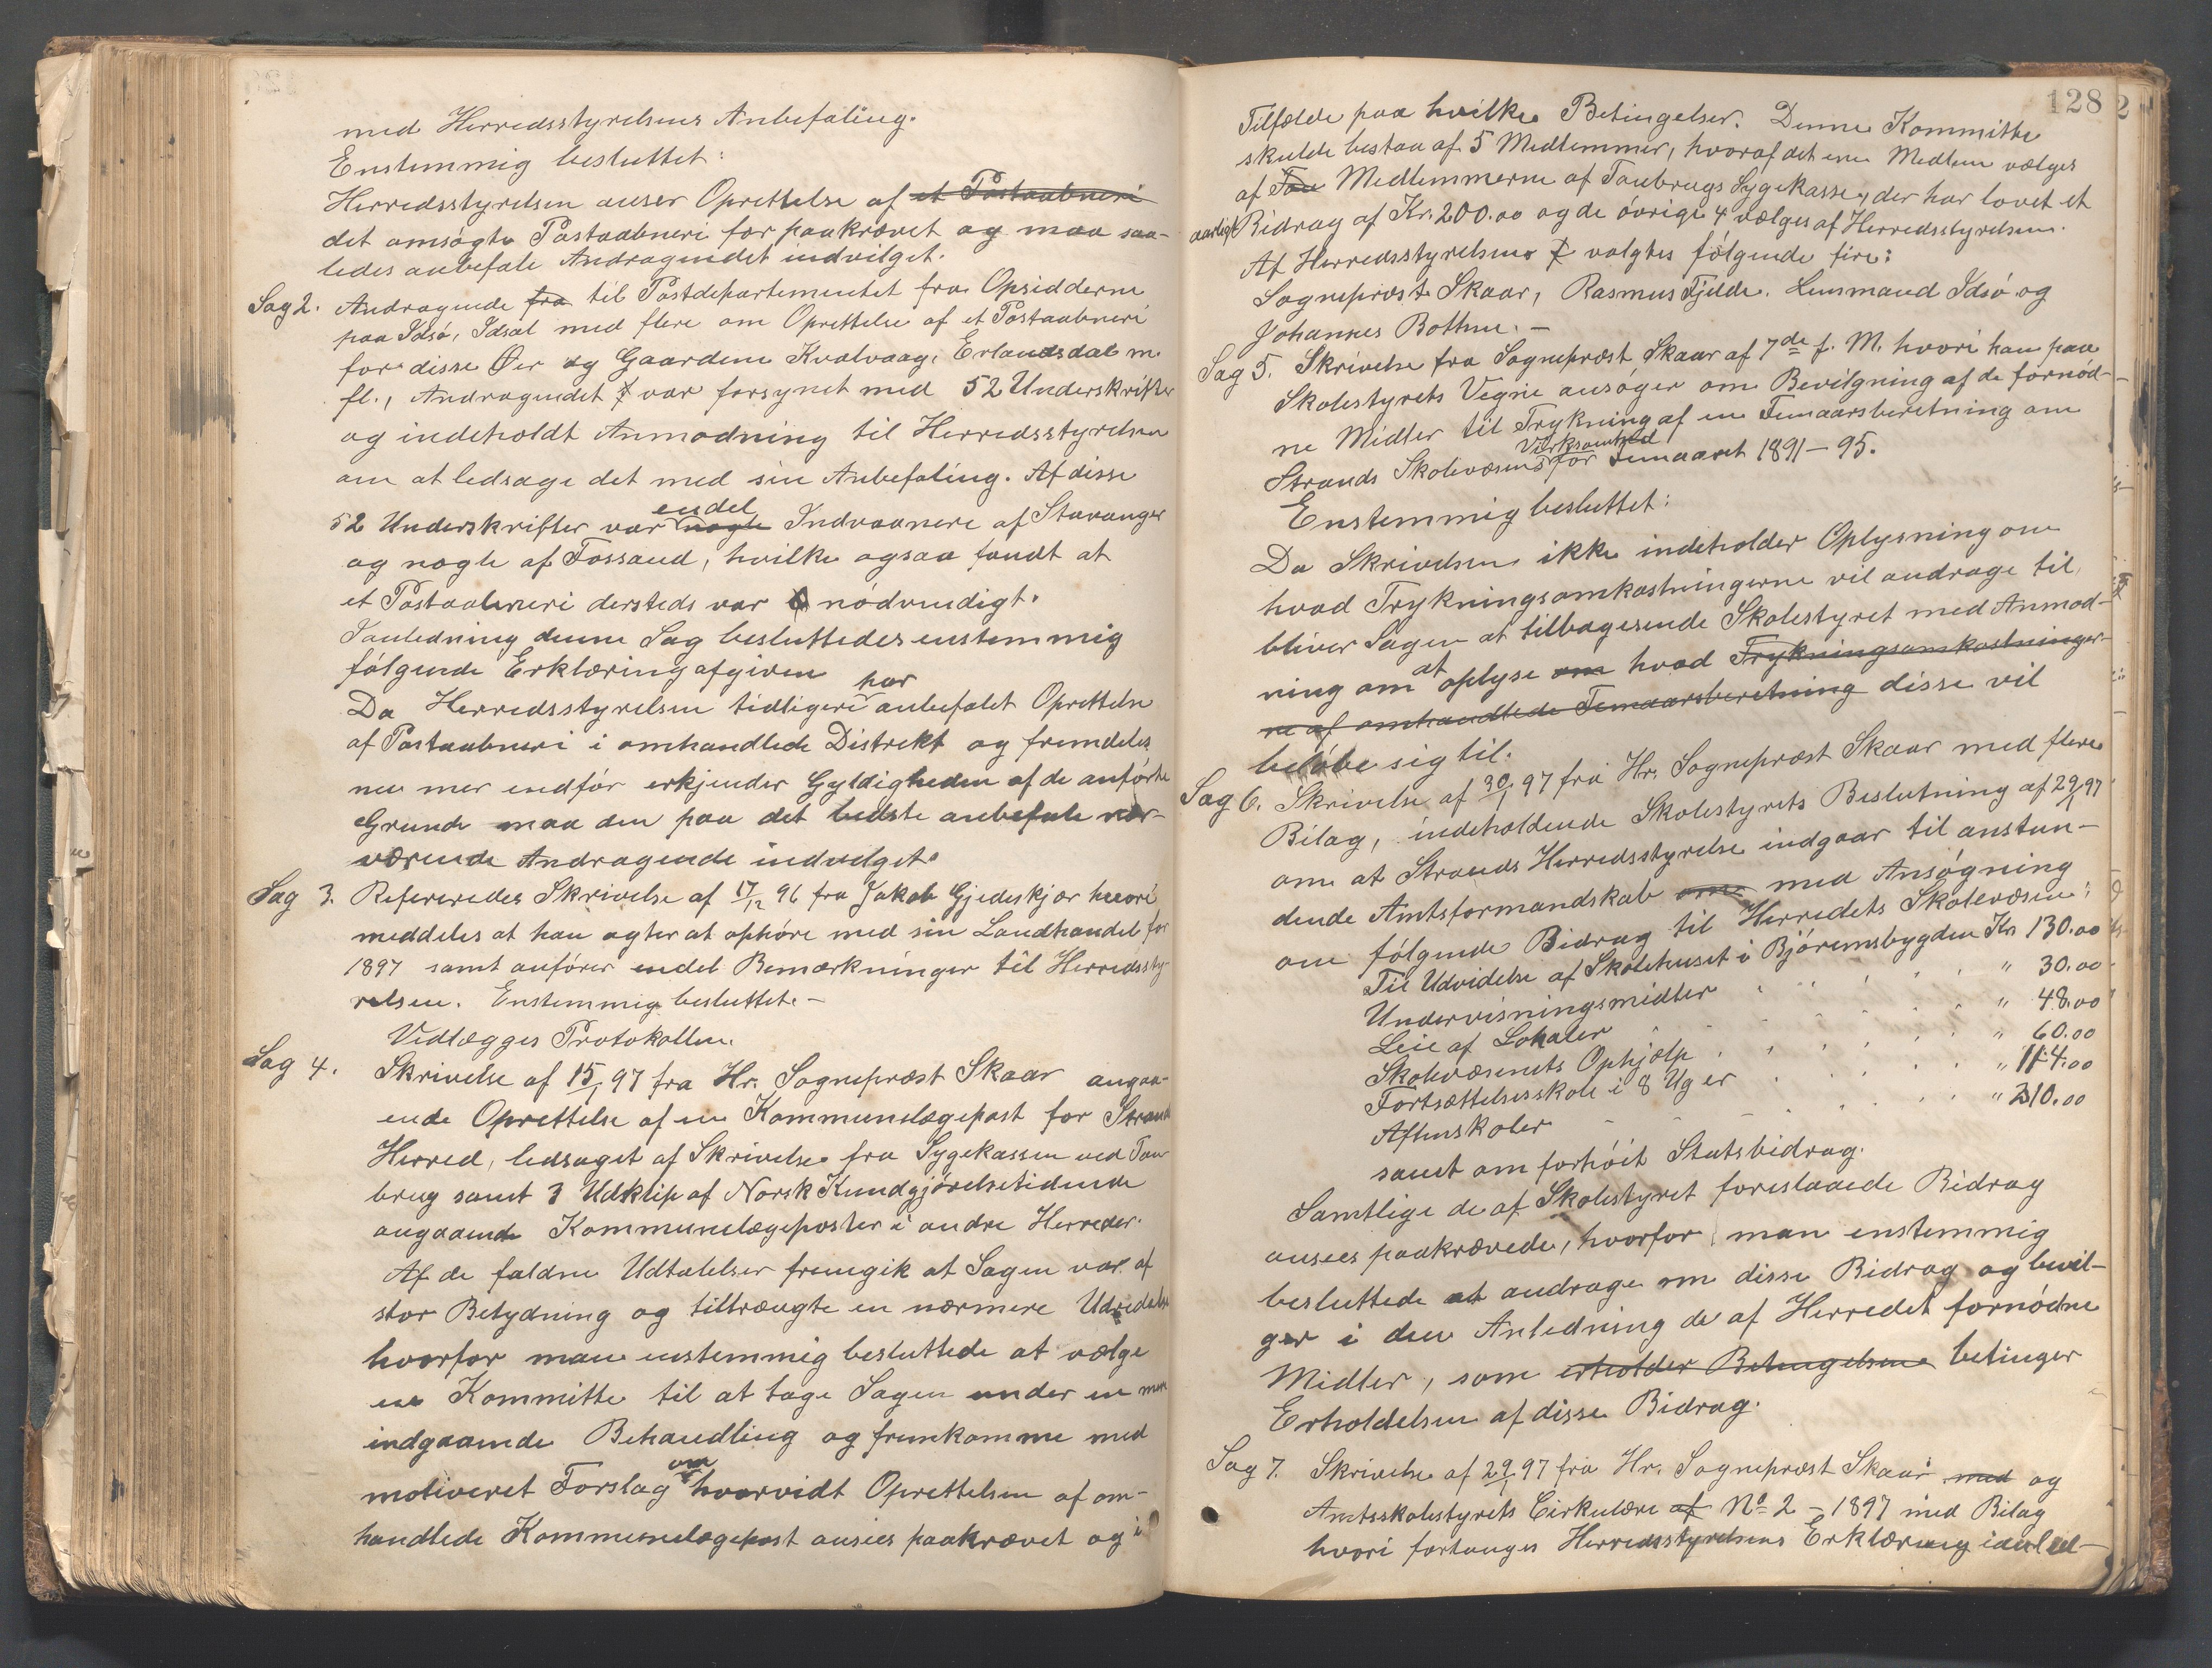 med Herredsstyrelsens Anbefaling.
Enstemmig besluttet:
Herredsstyrelsen anser Oprettelse af et Postaabneri
det omsøgte Postaabneri for paakrævet og maa saa-
ledes anbefale Andragendet indvilget.
Sag 2. Andragende fra til Postdepartementet fra Opsidderne
paa Idsø, Idsal med flere om Oprettelse af et Postaabneri
for disse Øer og Gaardene Kvalvaag, Erlandsdal m.
fl., Andragendet var forsynet med 52 Underskrifter
og indeholdt Anmodning til Herredsstyrelsen
om at ledsage det med sin Anbefaling. Af disse
endel
52 Underskrifter var nogle Indvaanere af Stavanger
og nogle af Fossand, hvilke ogsaa fandt at
et Postaabneri dersteds var nødvendigt.
I anledning denne Sag besluttedes enstemmig
følgende Erklæring afgiven
har
Da Herredsstyrelsen tidligere anbefalet Oprettelse
af Postaabneri i omhandlede Distrekt og fremdeles
nu mer endfør erkjender Gyldigheden af de anførte
Grunde maa den paa det bedste anbefale nær-
værende Andragende indvilget.
Sag 3. Refereredes Skrivelse af 17/12 96 fra Jakob Gjedeskjær hvori
meddeles at han agter at ophøre med sin Landhandel for
1897 samt anfører endel Bemærkninger til Herredssty-
relsen. Enstemmig besluttet. –
Vedlægges Protokollen.
Sag 4. Skrivelse af 15/1 97 fra Hr. Sognepræst Skaar angaa-
ende Oprettelse af en Kommunelægepost for Strand
Herred, ledsaget af Skrivelse fra Sygekassen ved Tau
brug samt 3 Udklip af Norsk Kundgjørelsetidende
angaaende Kommunelægeposter i andre Herreder.
Af de faldne Udtalelser fremgik at Sagen var af
stor Betydning og tiltrængte en nærmere Udredelse
hvorfor man enstemmig besluttede at vælge
en Kommitte til at tage Sagen under en mere
indgaaende Behandling og fremkomme med
om
motiveret Forslag hvorvidt Oprettelsen af om-
handlede Kommunelægepost ansees paakrævet og i
128
Tilfælde paa hvilke Betingelser. Denne Kommitte
skulde bestaa af 5 Medlemmer, hvoraf det ene Medlem vælges
af Tau Medlemmerne af Taubrugs Sygekasse, der har lovet et
aarligt Bidrag af Kr. 200.00 og de øvrige 4 vælges af Herredsstyrelsen.
Af Herredsstyrelsens valgtes følgende fire:
Sognepræst Skaar, Rasmus Fjelde. Lensmand Idsø og
Johannes Bothne. –
Sag 5. Skrivelse fra Sognepræst Skaar af 7de f. M. hvori han paa
Skolestyrets Vegne ansøger om Bevilgning af de fornød-
ne Midler til Trykning af en Femaarsberetning om
Virksomhed
Strands Skolevæsens for Femaaret 1891–95.
Enstemmig besluttet:
Da Skrivelsen ikke indeholder Oplysning om
hvad Trykningsomkostningerne vil andrage til,
bliver Sagen at tilbagesende Skolestyret med Anmod-
ning om at oplyse om hvad Trykningsomkostninger-
ne af omhandlede Femaarsberetning disse vil
beløbe sig til.
Sag 6. Skrivelse af 30/1 97 fra Hr. Sognepræst Skaar med flere
Bilag, indeholdende Skolestyrets Beslutning af 29/1 97
om at Strands Herredsstyrelse indgaar til anstun-
dende Amtsformandskab om med Ansøgning
om følgende Bidrag til Herredets Skolevæsen:
Til Udvidelse af Skolehuset i Bjørensbygden Kr 130.00
Undervisningsmidler " 30.00
Leie af Lokaler " 48.00
Skolevæsenets Ophjælp " 60.00
Fortsættelsesskole i 8 Uger " 114.00
Aftenskoler " 210.00
samt om forhøit Statsbidrag.
Samtlige de af Skolestyret foreslaaede Bidrag
ansees paakrævede, hvorfor man enstemmig
besluttede at andrage om disse Bidrag og bevil-
ger i den Anledning de af Herredet fornødne
Midler, som erholder Betingelsene betinger
Erholdelsen af disse Bidrag.
Sag 7. Skrivelse af 29/1 97 fra Hr. Sognepræst Skaar med og
Amtsskolestyrets Cirkulære af No 2 – 1897 med Bilag
hvori forlanges Herredsstyrelsens Erklæring